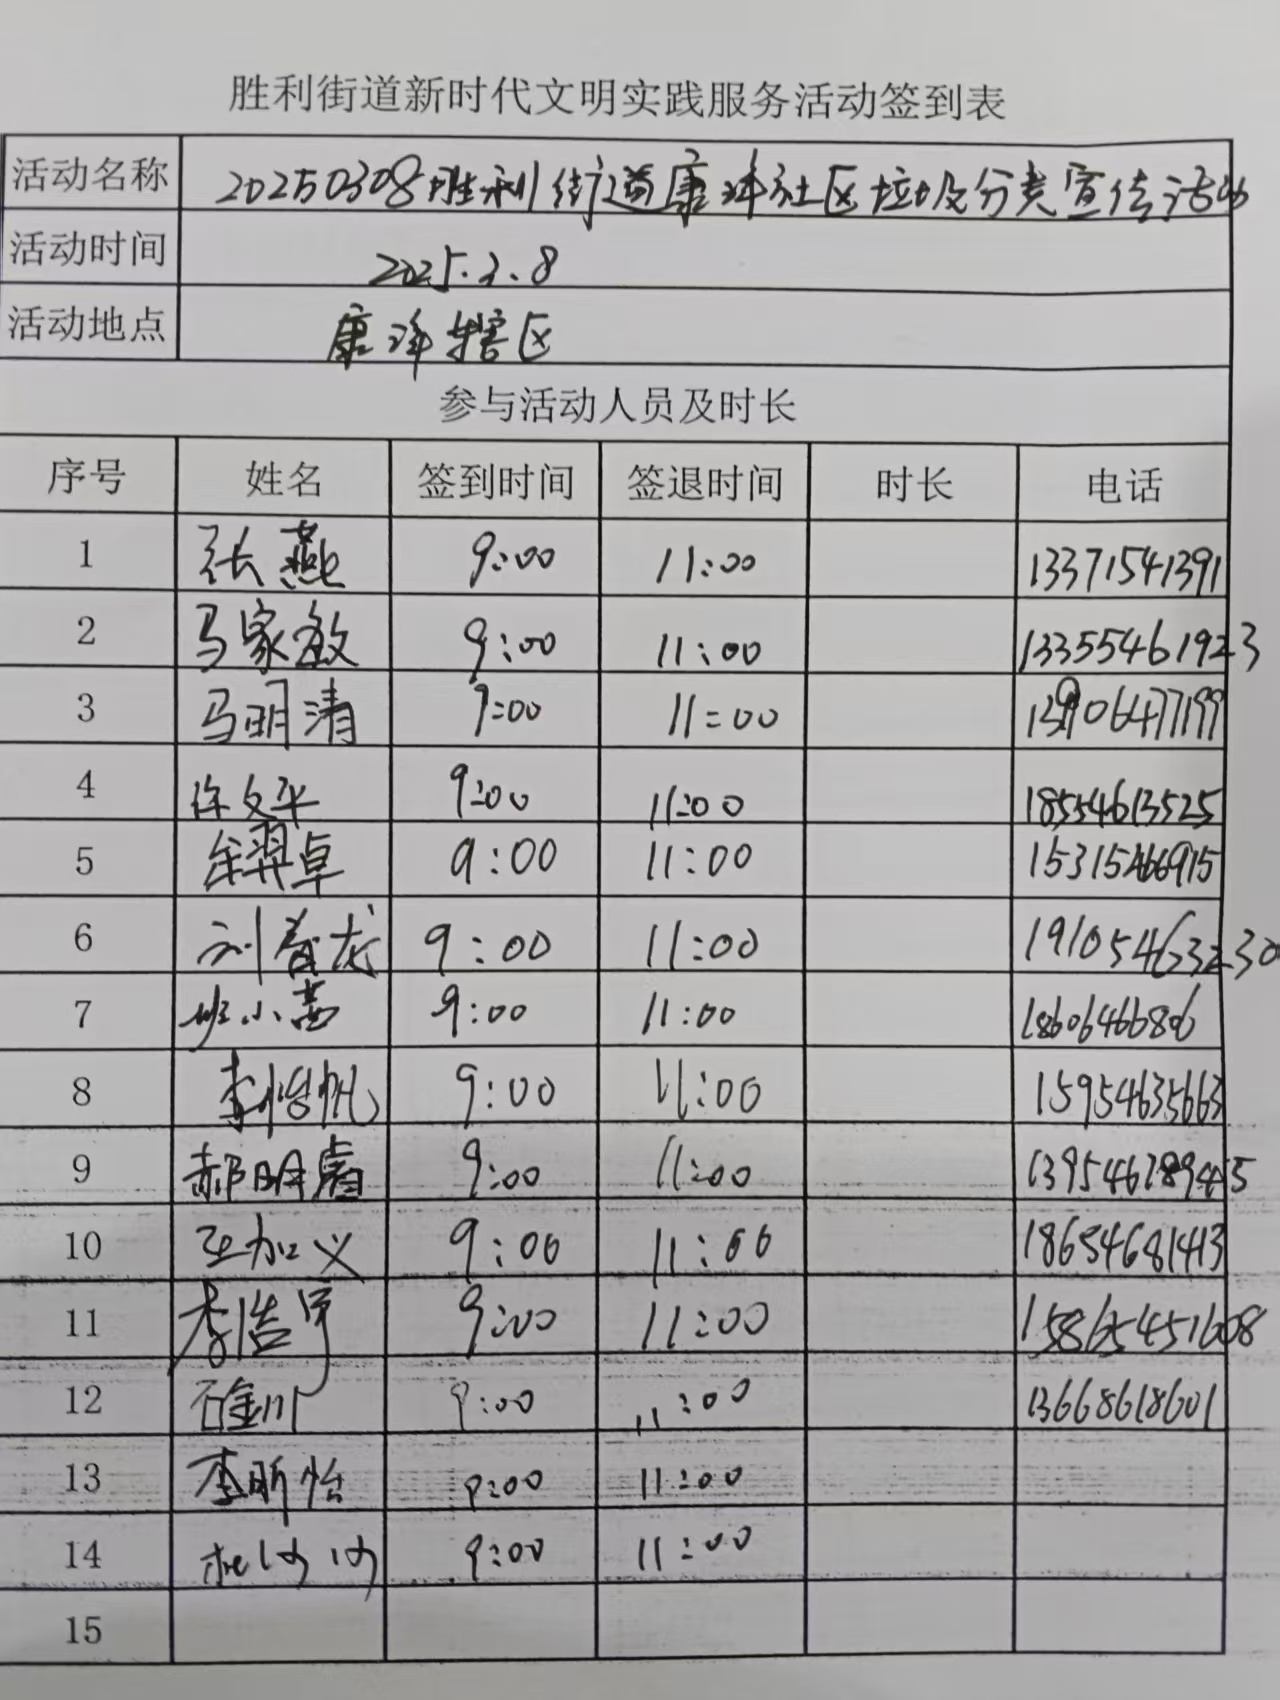 胜利街道新时代文明实践服务活动签到表
活动名称 20250308胜利街道康洋社区垃圾分类宣传活动
活动时间 2025.3.8
活动地点 康洋辖区
参与活动人员及时长
序号 姓名 签到时间 签退时间 时长 电话
1 张燕 9:00 11:00 13371541391
2 马家敏 9:00 11:00 13355461923
3 马明清 9:00 11:00 13906477199
4 徐文平 9:00 11:00 18554613525
5 牟羿卓 9:00 11:00 15315466915
6 刘春龙 9:00 11:00
7 班小燕 9:00 11:00 18606466806
8 李浩帆 9:00 11:00 15954635663
9 郝明睿 9:00 11:00
10 王加义 9:00 11:00 18654681413
11 李浩宇 9:00 11:00
12 石金川 9:00 11:00 13668618601
13 李昕怡 9:00 11:00
14 9:00 11:00
15